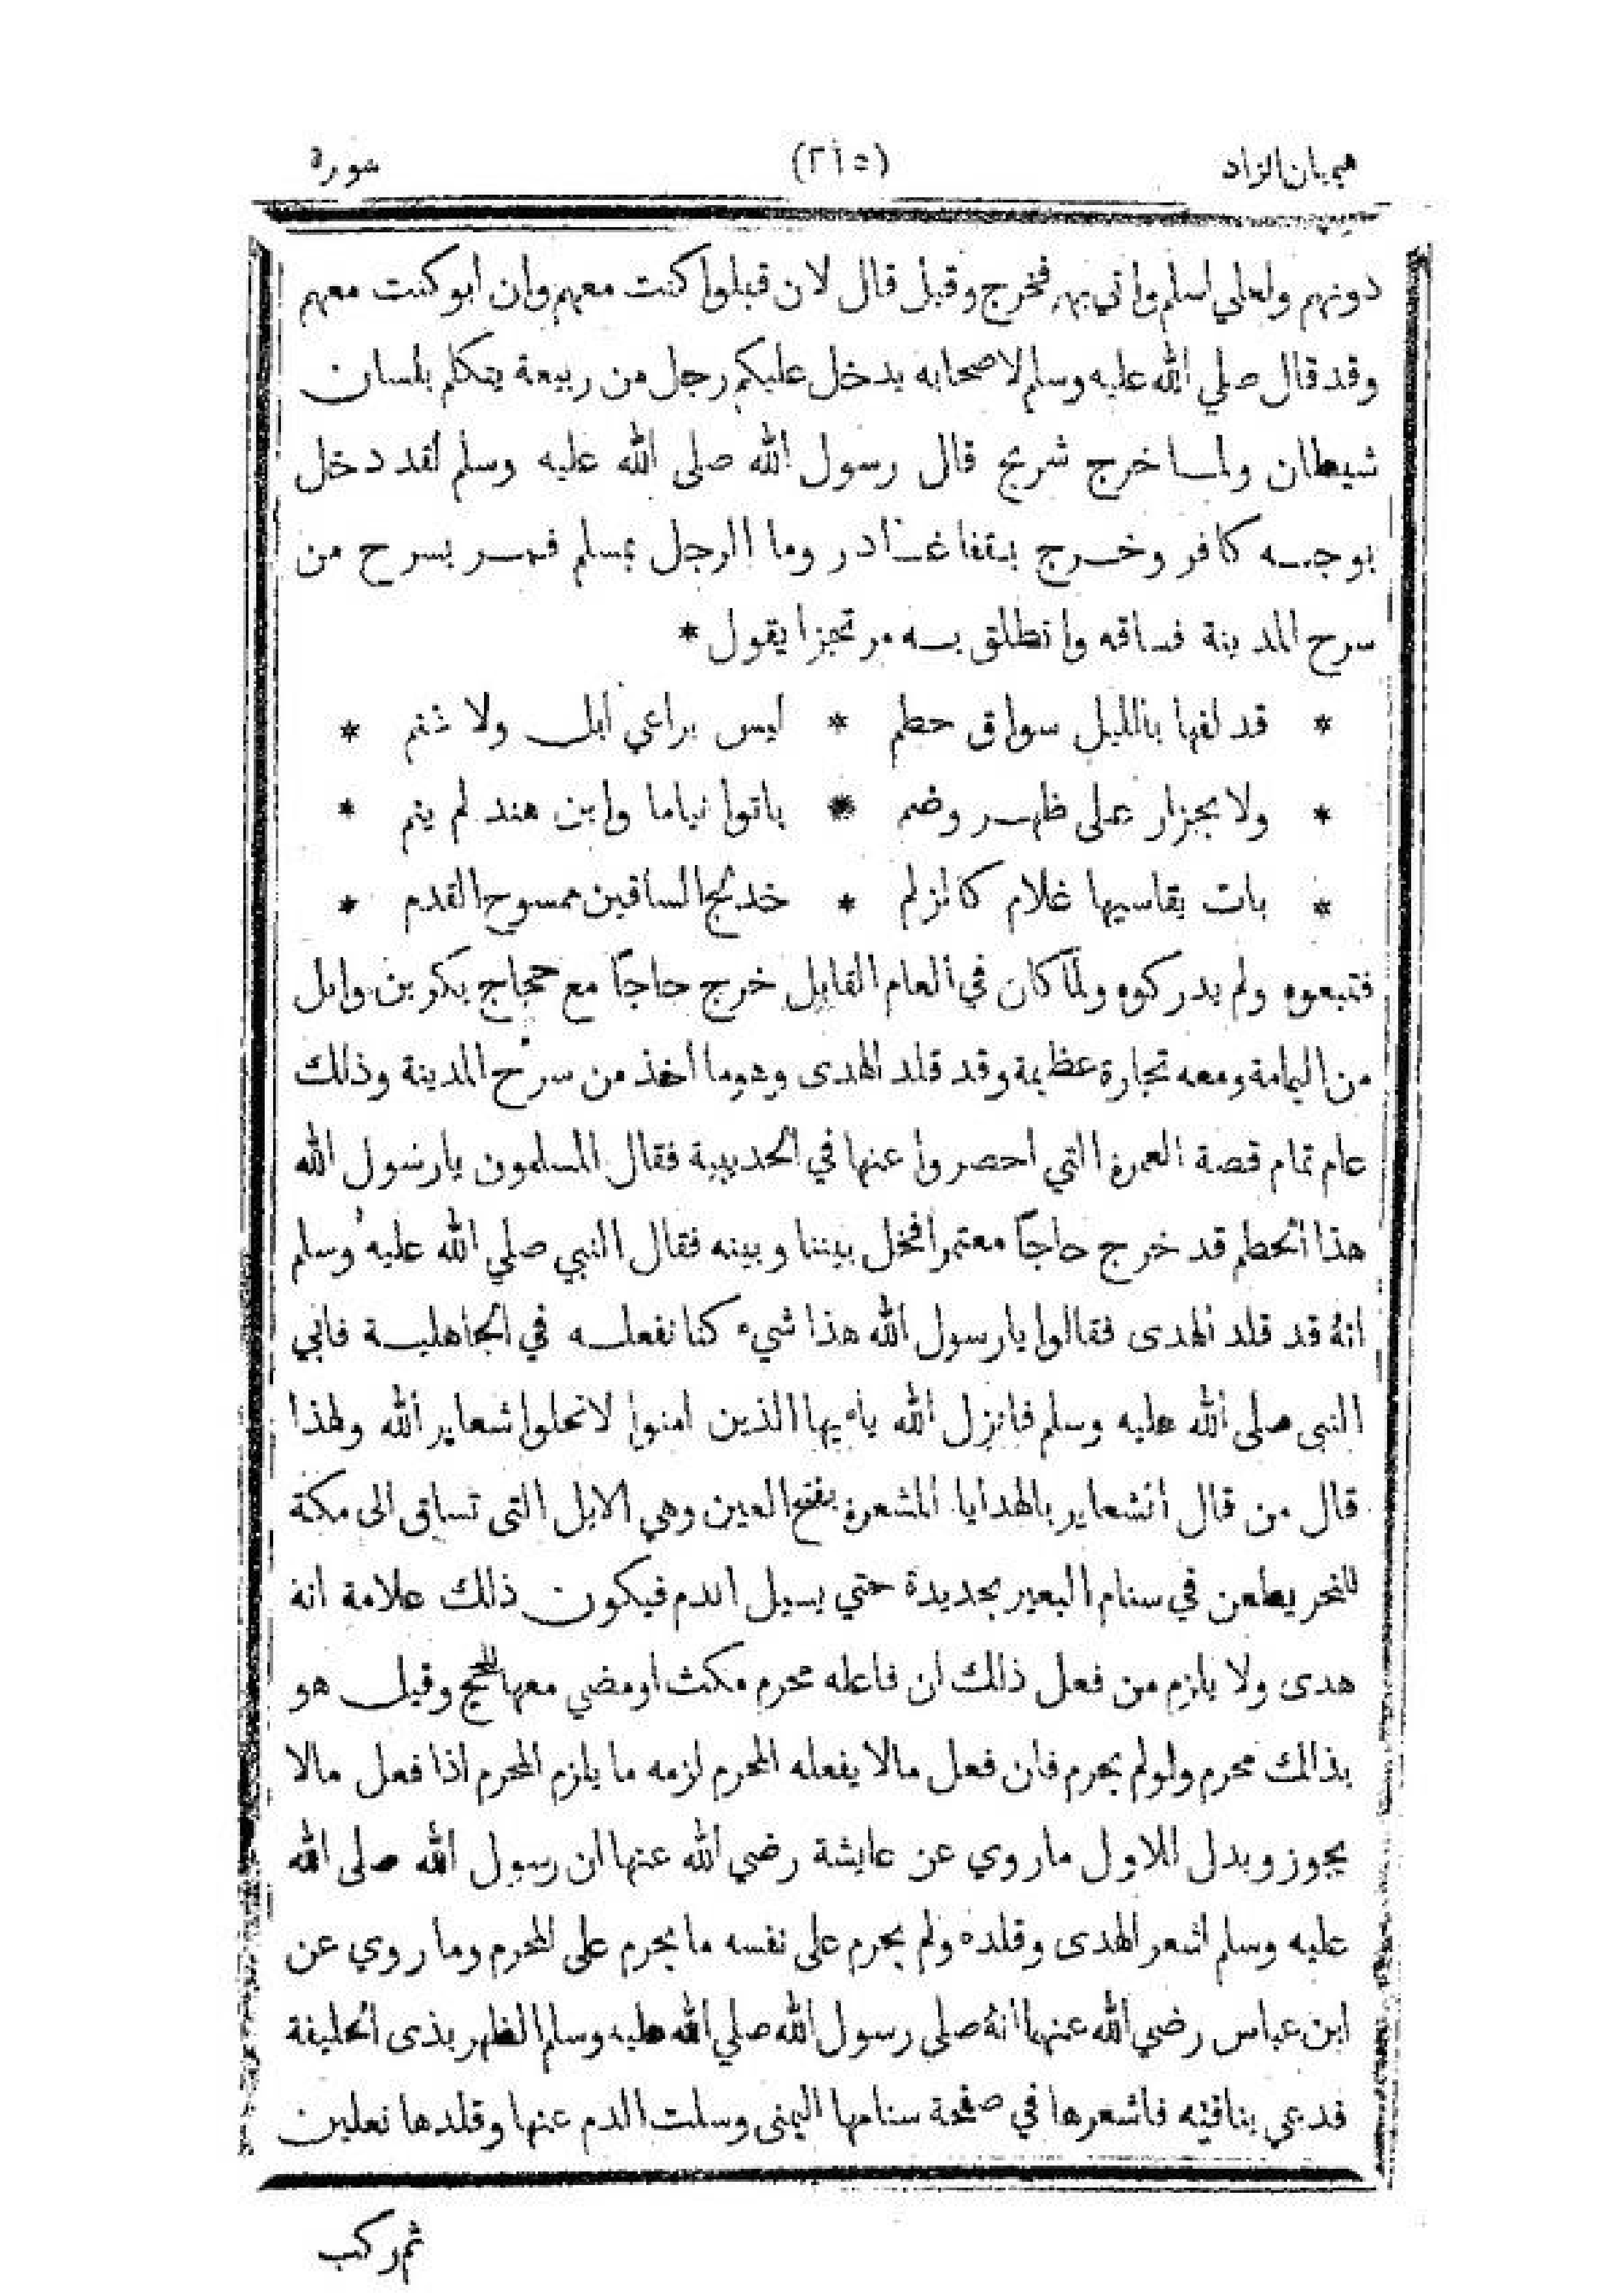 هيميان الزاد (٢١٥) سورة
دونهم ولعلي اسلم واتي بهم فخرج وقيل قال لان قبلوا كنت معهم وان ابو كنت معهم
وقد قال صلي الله عليه وسلم لاصحابه يدخل عليكم رجل من ربيعة يتكلم بلسان
شيطان ولما خرج شريح قال رسول الله صلى الله عليه وسلم لقد دخل
بوجه كافر وخرج بقفا غادر وما الرجل بمسلم فمر بسرح من
سرح المدينة فساقه وانطلق به مرتجزا يقول *
* قد لفها بالليل سواق حطم * ليس براعي ابل ولا غنم *
* ولا بجزار على ظهر وضم * باتوا نياما وابن هند لم ينم *
* بات يقاسيها غلام كالزلم * خدلج الساقين ممسوح القدم *
فتبعوه ولم يدركوه ولما كان في العام القابل خرج حاجا مع حجاج بكر بن وايل
من اليمامة ومعه تجارة عظيمة وقد قلد الهدى وهو ما اخذ من سرح المدينة وذلك
عام تمام قصة العمرة التي احصروا عنها في الحديبية فقال المسلمون يارسول الله
هذا الحطم قد خرج حاجا معتمرا فخل بيننا وبينه فقال النبي صلي الله عليه وسلم
انه قد قلد الهدى فقالوا يارسول الله هذا شيء كنا نفعله في الجاهلية فابي
النبي صلى الله عليه وسلم فانزل الله يأيها الذين امنوا لاتحلوا شعاير الله ولهذا
قال من قال الشعاير بالهدايا المشعرة بفتح العين وهي الابل التى تساق الى مكة
للنحر يطعن في سنام البعير بحديدة حتي يسيل الدم فيكون ذلك علامة انه
هدى ولا يلزم من فعل ذالك ان فاعله محرم مكث او مضي معها للحج وقيل هو
بذالك محرم ولو لم يحرم فان فعل مالا يفعله المحرم لزمه ما يلزم المحرم اذا فعل مالا
يجوز ويدل للاول ما روي عن عايشة رضي الله عنها ان رسول الله صلى الله
عليه وسلم اشعر الهدى وقلده ولم يحرم على نفسه ما يحرم على المحرم وما روي عن
ابن عباس رضي الله عنهما انه صلى رسول الله صلي الله عليه وسلم الظهر بذى الحليفة
فدعي بناقته فاشعرها في صفحة سنامها اليمنى وسلت الدم عنها وقلدها نعلين
ثم ركب